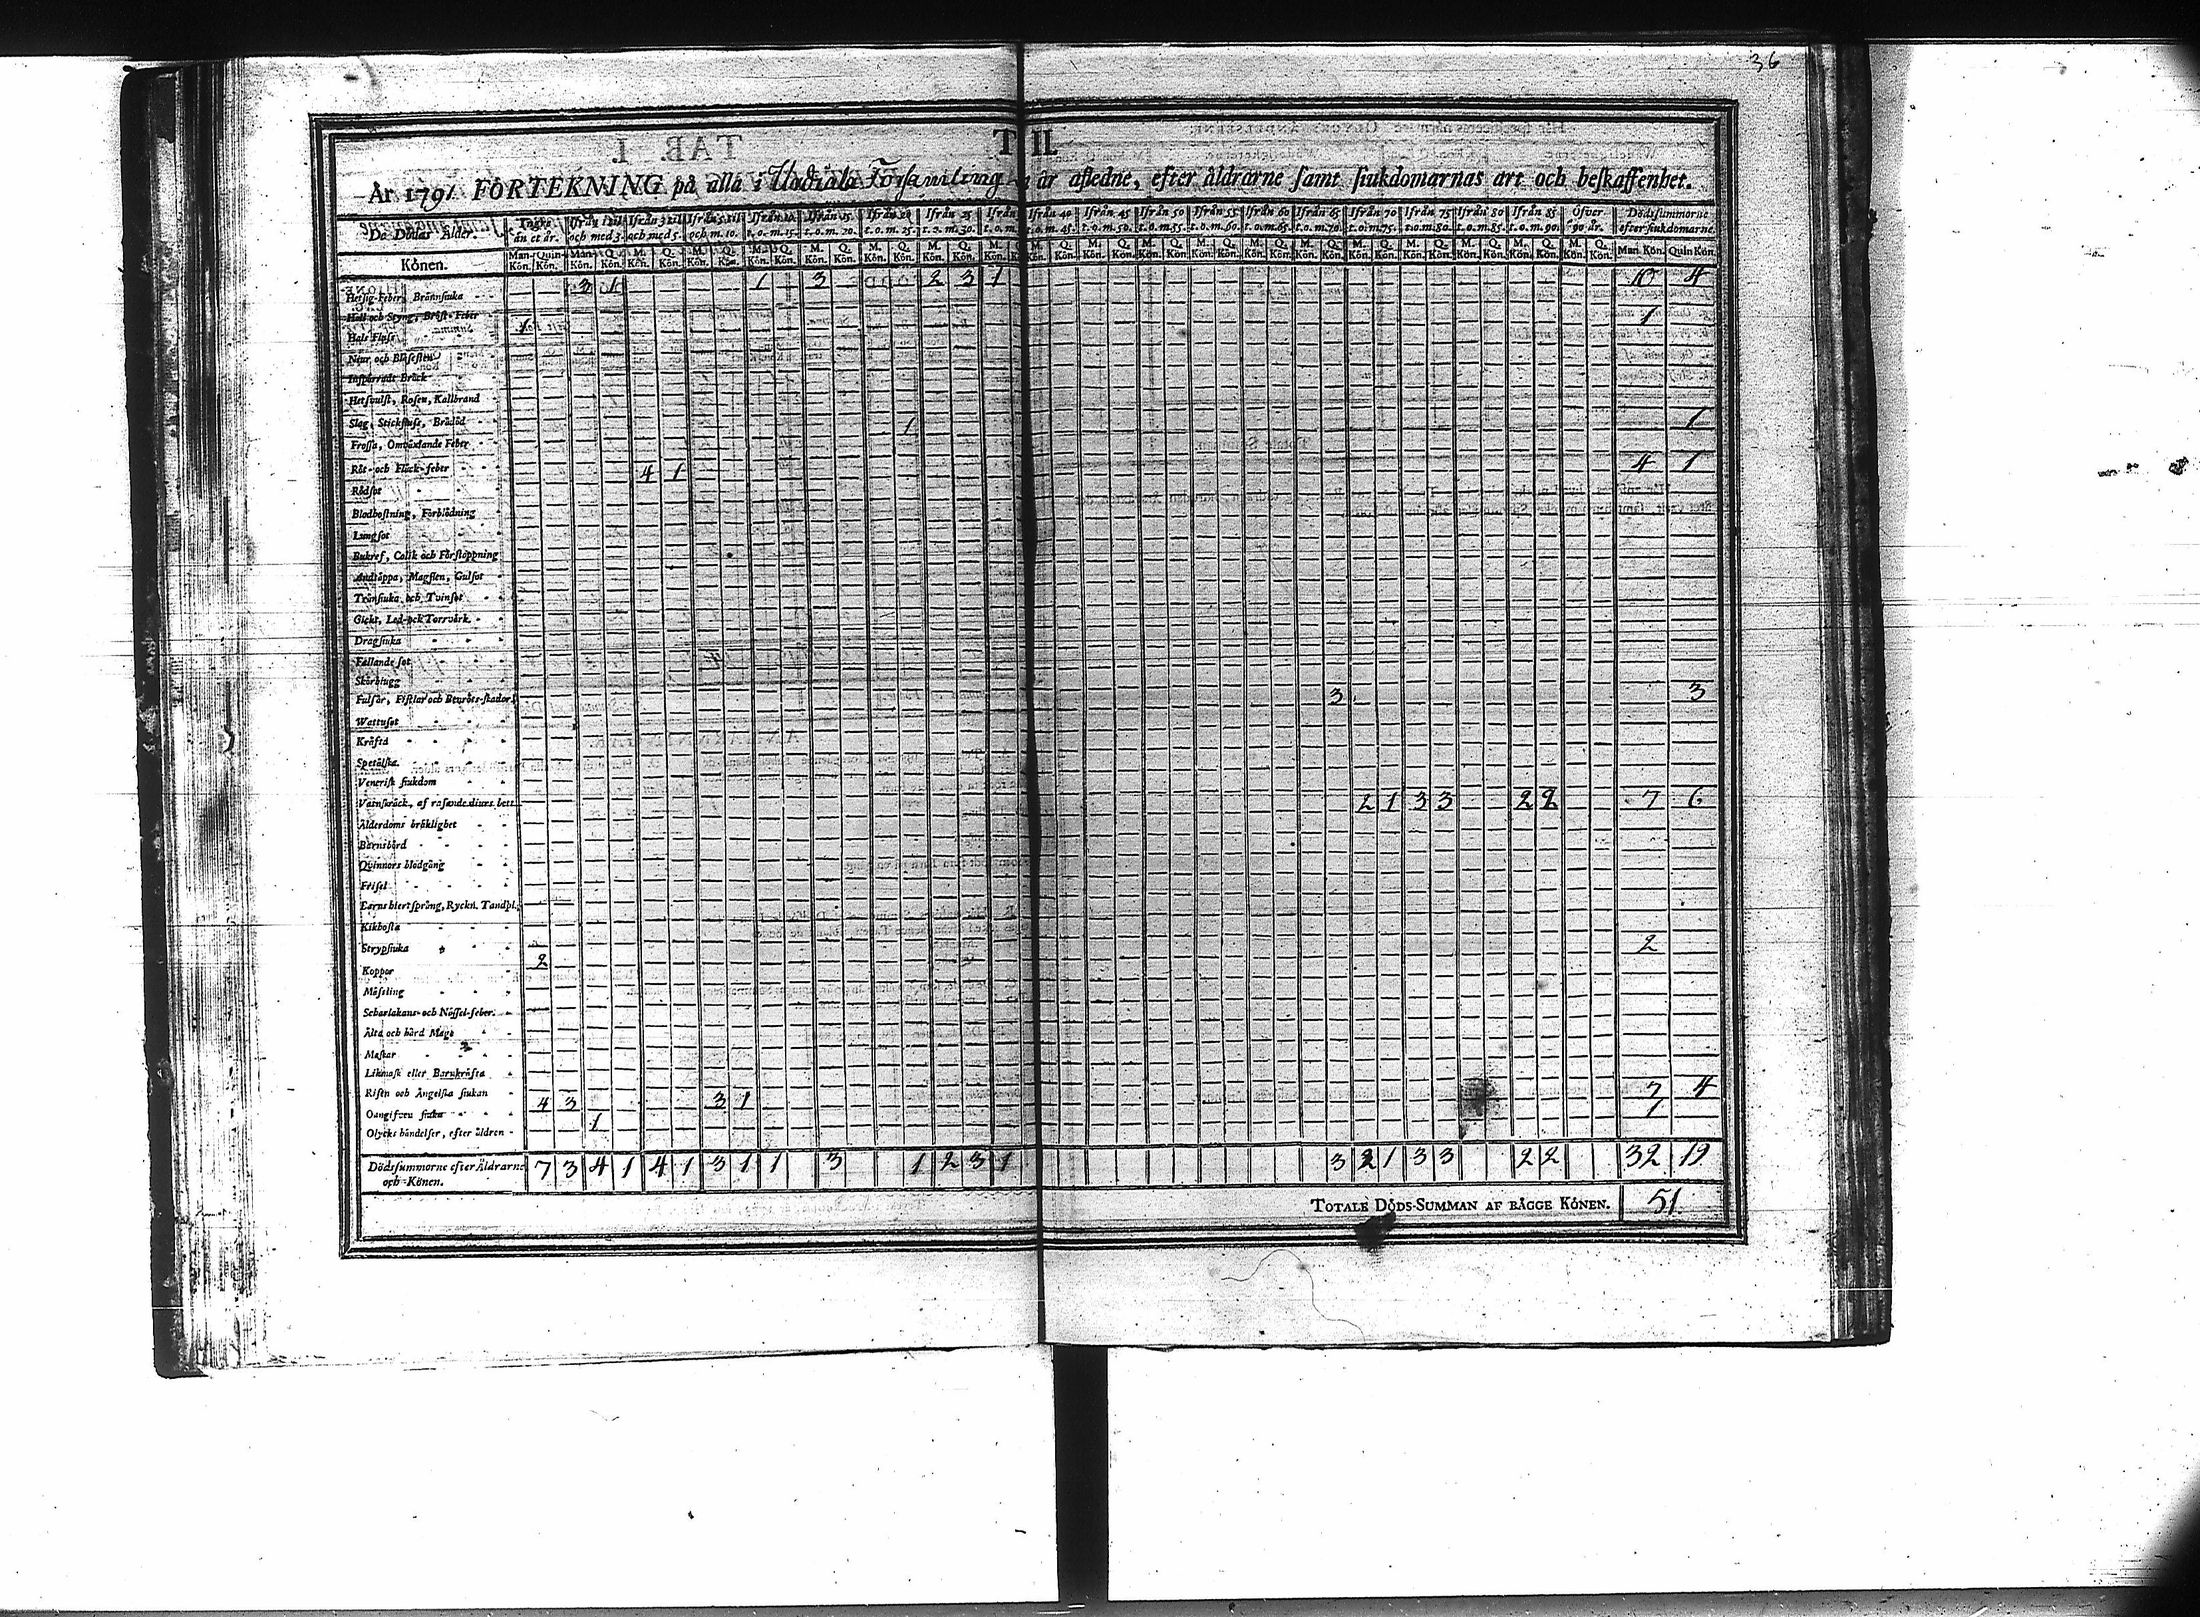 36
T II.
År 1791. FÖRTEKNING på alla i Församling år afledne, efter åldrarne samt siukdomarnas art och beskaffenhet.
De Dödas Ålder. Yngre än et år. Ifrån 1 til och med 3. Ifrån 3 til och med 5. Ifrån 5 til och m. 10. Ifrån 10 t. o. m. 15. Ifrån 15 t. o. m. 20. Ifrån 20 t. o. m. 25. Ifrån 25 t. o. m. 30. Ifrån t. o. m. Ifrån 40 t. o. m. 45. Ifrån 45 t. o. m. 50. Ifrån 50 t. o. m. 55. Ifrån 55 t. o. m. 60. Ifrån 60 t. o. m. 65. Ifrån 65 t. o. m. 70. Ifrån 70 t. o. m. 75. Ifrån 75 t. o. m. 80. Ifrån 80 t. o. m. 85. Ifrån 85 t. o. m. 90. Öfver 90 år. Dödssummorne efter siukdomarne.
Könen. Man-Kön. Quin-Kön. Man-Kön. Q. Kön. M. Kön. Q. Kön. M. Kön. Q. Kön. M. Kön. Q. Kön. M. Kön. Q. Kön. M. Kön. Q. Kön. M. Kön. Q. Kön. M. Kön. Q. Kön. M. Kön. Q. Kön. M. Kön. Q. Kön. M. Kön. Q. Kön. M. Kön. Q. Kön. M. Kön. Q. Kön. M. Kön. Q. Kön. M. Kön. Q. Kön. M. Kön. Q. Kön. M. Kön. Q. Kön. M. Kön. Q. Kön. Man. Kön. Quin Kön.
Hetsig-Feber, Brännsiuka 3 1 1 3 2 3 1 10 4
Håll och Styng, Bröst-Feber 1 1
Hals Fluss
Niur och Blåsesten
Inspärradt Bråck
Hetsvulst, Rosen, Kallbrand
Slag, Stickfluss, Brådöd 1 1
Frossa, Omväxlande Feber
Röt- och Fläck-feber 4 1 4 1
Rödsot
Blodhostning, Förblödning
Lungsot
Bukref, Colik och Förstoppning
Andtäppa, Magsten, Gulsot
Tränsiuka och Tvinsot
Gickt, Led- och Torrvärk
Dragsiuka
Fallande sot
Skörbiugg
Fulsår, Fistlar och Benröts-skador 3 3
Wattusot
Kräfta
Spetälska
Venerisk siukdom
Vatnskräck, af rasande diurs bett 2 1 3 3 2 2 7 6
Ålderdoms bräklighet
Barnsbörd
Qvinnors blodgång
Frisel
Barns hiertsprång, Ryckn. Tandpl.
Kikhosta
Strypsiuka 2
Koppor 2
Mässling
Scharlakans- och Nässel-feber
Älta och hård Mage
Maskar
Likmask eller Barnkräfta
Risen och Ängelska siukan 4 3 3 1 7 4
Oangifven siuka 1 1
Olycks händelser, efter åldren
Dödssummorne efter Åldrarne och Könen. 7 3 4 1 4 1 3 1 1 3 1 2 3 1 3 2 1 3 3 2 2 32 19
TOTALE DÖDS-SUMMAN AF BÅGGE KÖNEN. 51.